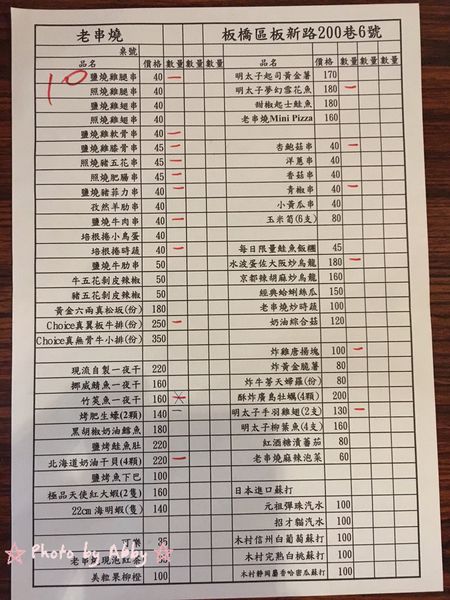 老串燒
板橋區板新路200巷6號
桌號
品名 價格 數量 數量 數量
10
鹽燒雞腿串 40 一
照燒雞腿串 40
鹽燒雞翅串 40
照燒雞翅串 40
鹽燒雞軟骨串 40 一
鹽燒雞膝骨串 45 一
照燒豬五花串 45 一
照燒肥腸串 45 一
鹽燒豬菲力串 40 一
孜然羊肋串 40
鹽燒牛肉串 40 一
培根捲小鳥蛋 40
培根捲時蔬 40 一
鹽燒牛肋串 50
牛五花剝皮辣椒 50
豬五花剝皮辣椒 50
黃金六兩真松坂(份) 180
Choice真翼板牛排(份) 250 一
Choice真無骨牛小排(份) 350
現流自製一夜干 220
挪威鯖魚一夜干 160
竹筴魚一夜干 160
烤肥生蠔(2顆) 140 一
黑胡椒奶油鱈魚 180
鹽烤鮭魚肚 220
北海道奶油干貝(4顆) 220 一
鹽烤魚下巴 100
極品天使紅大蝦(2隻) 160
22cm海明蝦(隻) 140
35
老串燒現泡紅茶 35
美粒果柳橙 100
品名 價格 數量 數量 數量
明太子起司黃金薯 170
明太子夢幻雪花魚 180 一
甜椒起士鮭魚 180
老串燒Mini Pizza 160
杏鮑菇串 40 一
洋蔥串 40
香菇串 40
青椒串 40 一
小黃瓜串 40
玉米筍(6支) 80
每日限量鮭魚飯糰 45
水波蛋佐大阪炒烏龍 180 一
京都辣胡麻炒烏龍 160
經典蛤蜊絲瓜 150
老串燒炒時蔬 100
奶油綜合菇 120
炸雞唐揚塊 100 一
炸黃金脆薯 80
炸牛蒡天婦羅(份) 80
酥炸廣島牡蠣(4顆) 200
明太子手羽雞翅(2支) 130 一
明太子柳葉魚(4支) 160
紅酒糖漬蕃茄 80
老串燒麻辣泡菜 60
日本進口蘇打
元祖彈珠汽水 100
招才貓汽水 100
木村信州白葡萄蘇打 100
木村完熟白桃蘇打 100
木村靜岡麝香哈密瓜蘇打 100
☆ Photo by Abby ☆